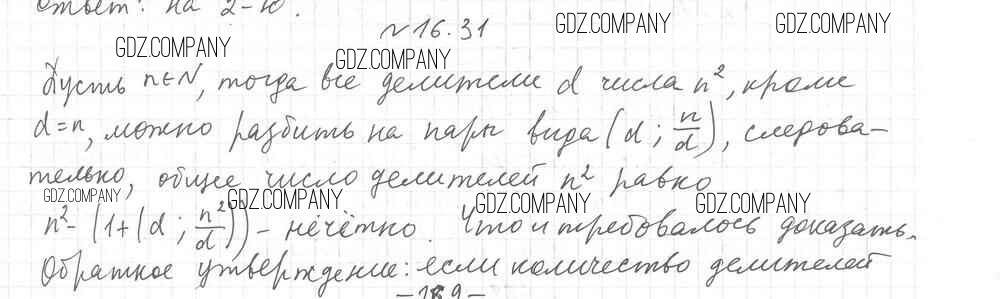 Ответ: на 2-ю.
№16.31
GDZ.COMPANY GDZ.COMPANY
GDZ.COMPANY GDZ.COMPANY
Пусть n∈N, тогда все делители d числа n², кроме
d=n, можно разбить на пары вида (d; n/d), следова-
тельно, общее число делителей n² равно
GDZ.COMPANY GDZ.COMPANY GDZ.COMPANY GDZ.COMPANY
n²-(1+(d; n²/d)) - нечётно. Что и требовалось доказать.
Обратное утверждение: если количество делителей
-189-